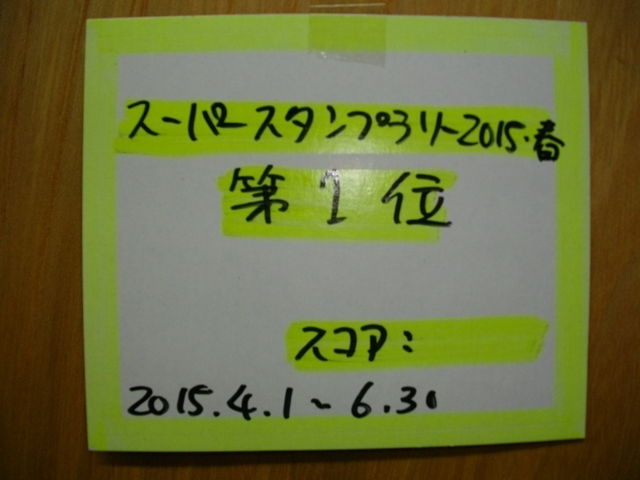 スーパースタンプラリー2015.春
第1位
スコア:
2015.4.1~6.30